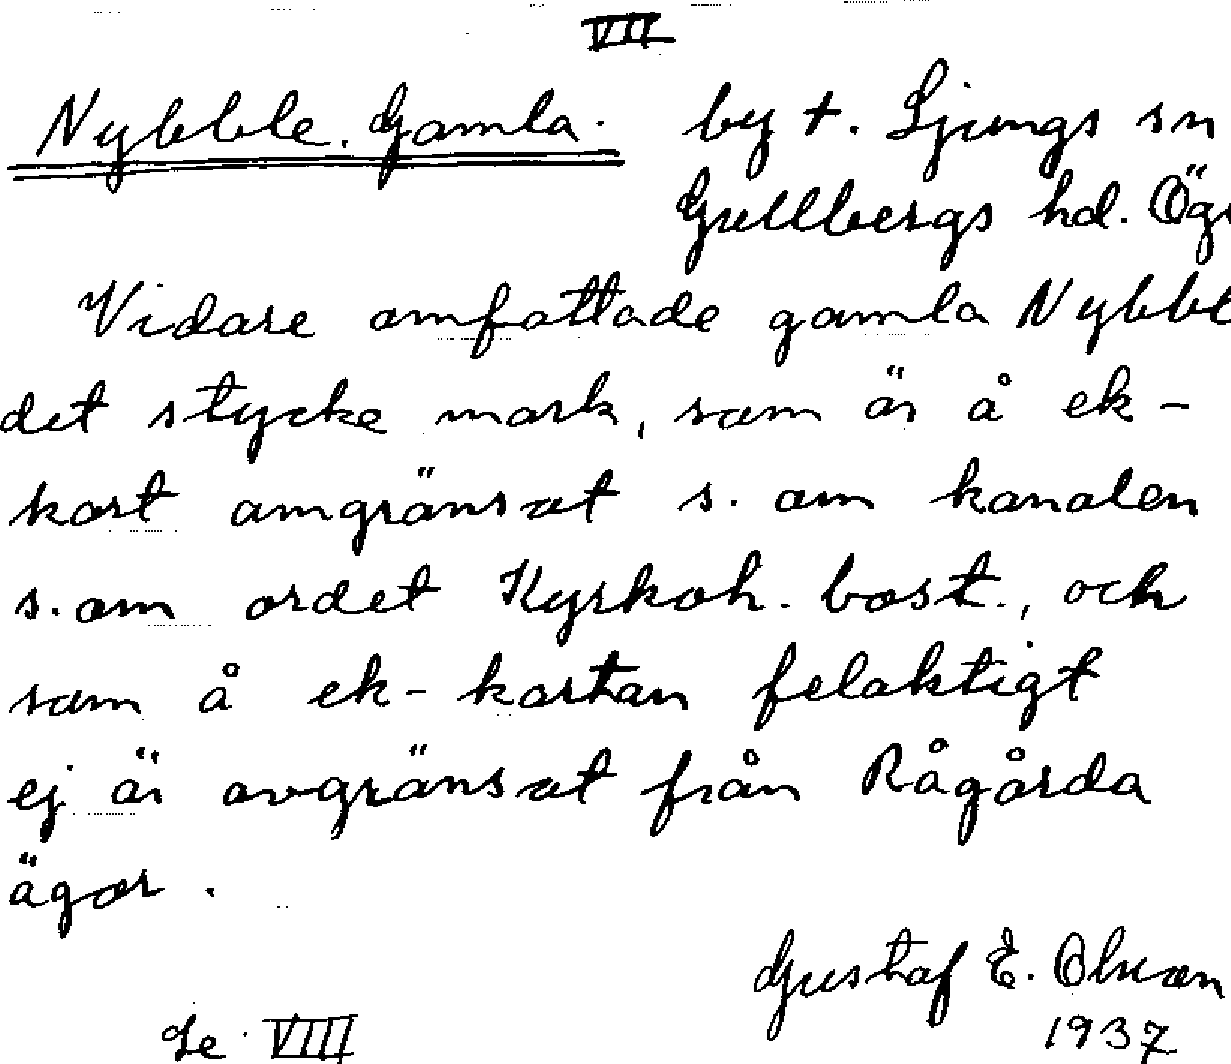 VII
Nybble. Gamla. by †. Ljungs sn
Gullbergs hd. Ög
Vidare omfattade gamla Nybbl
det stycke mark, som är å ek-
kart omgränsat s. om kanalen
s. om ordet Kyrkoh. bost., och
som å ek-kartan felaktigt
ej är avgränsat från Rågårda
ägor.
Gustaf E. Olsson
1937
Se VIII